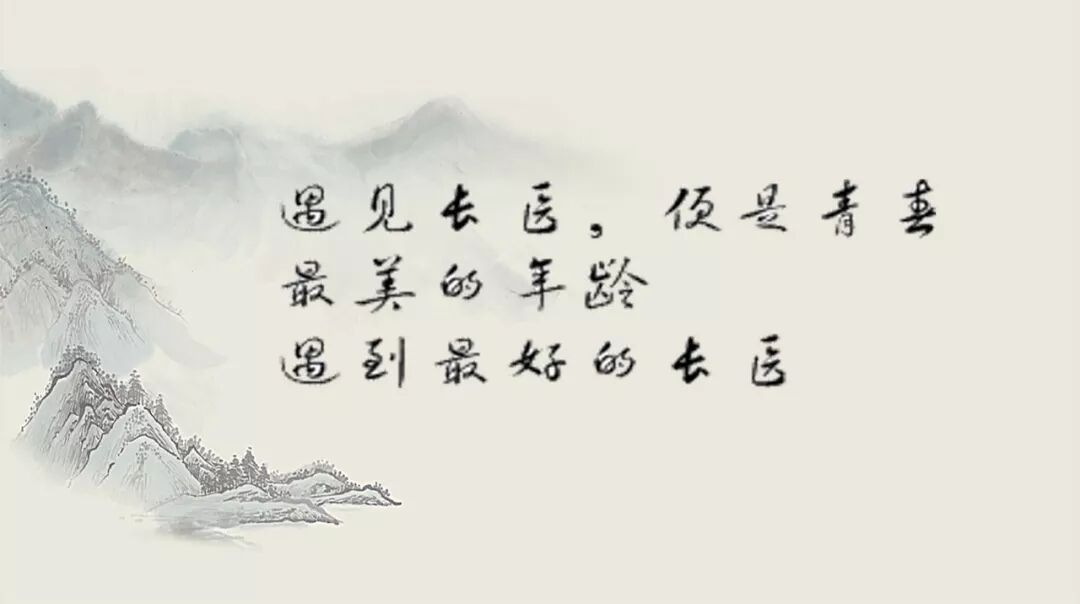 遇见长医，便是青春
最美的年龄
遇到最好的长医